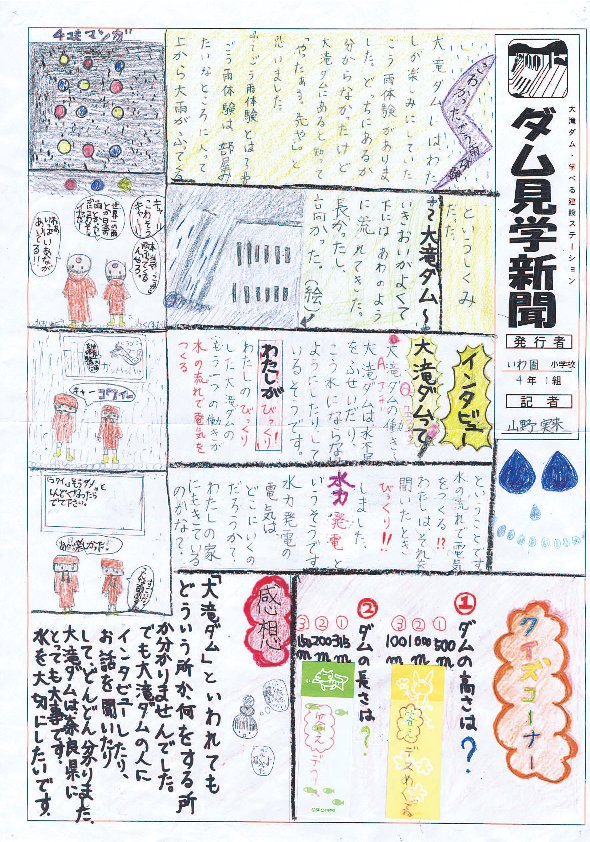 大滝ダム・学べる建設ステーション
ダム見学新聞
発行者
いわ園 小学校
4年 1組
記者
山野 実来
大滝ダムはわた
しが楽しみにしていた
ごう雨体験がありま
した。どっちにあるか
分からなかったけど
大滝ダムにあると知って
「やったぁ、先や」と
思いました。
ごう雨体験とは？
ごう雨体験は、部屋み
たいなところに入って
上から大雨がふってる
というしくみ
だった。
大滝ダム〜
いきおいがよくて
下にはあわのよう
に流れてきた。
長かったし、
高かった。(絵)
インタビュー
大滝ダムって
大滝ダムは水不足
をふせいだり、
こう水にならない
ようにしたりして
いるそうです。
わたしが
びっくり!
わたしのびっくり
した大滝ダムの
もう一つの働きが
水の流れで電気を
つくる
ということです
水の流れで電気
をつくる!?
わたしはそれを
聞いたとき
びっくり!!
しました。
水力発電と
いうそうです
水力発電の
電気は
どこにいくの
だろうか?、
わたしの家
にもきている
のかな?、
クイズコーナー
① ダムの高さは?
① 500m
② 1000m
③ 100m
答え
デスめくる
② ダムの長さは?
① 315m
② 200m
答え
感想
「大滝ダム」といわれても
どういう所か、何をする所
か分かりませんでした。
でも大滝ダムの人に
インタビューしたり、
お話を聞いたり
して、どんどん分かりました。
大滝ダムは奈良県に
とっても大事です。
水を大切にしたいです。
4コママンガ
キャー
こわそう
キャー
コワイー